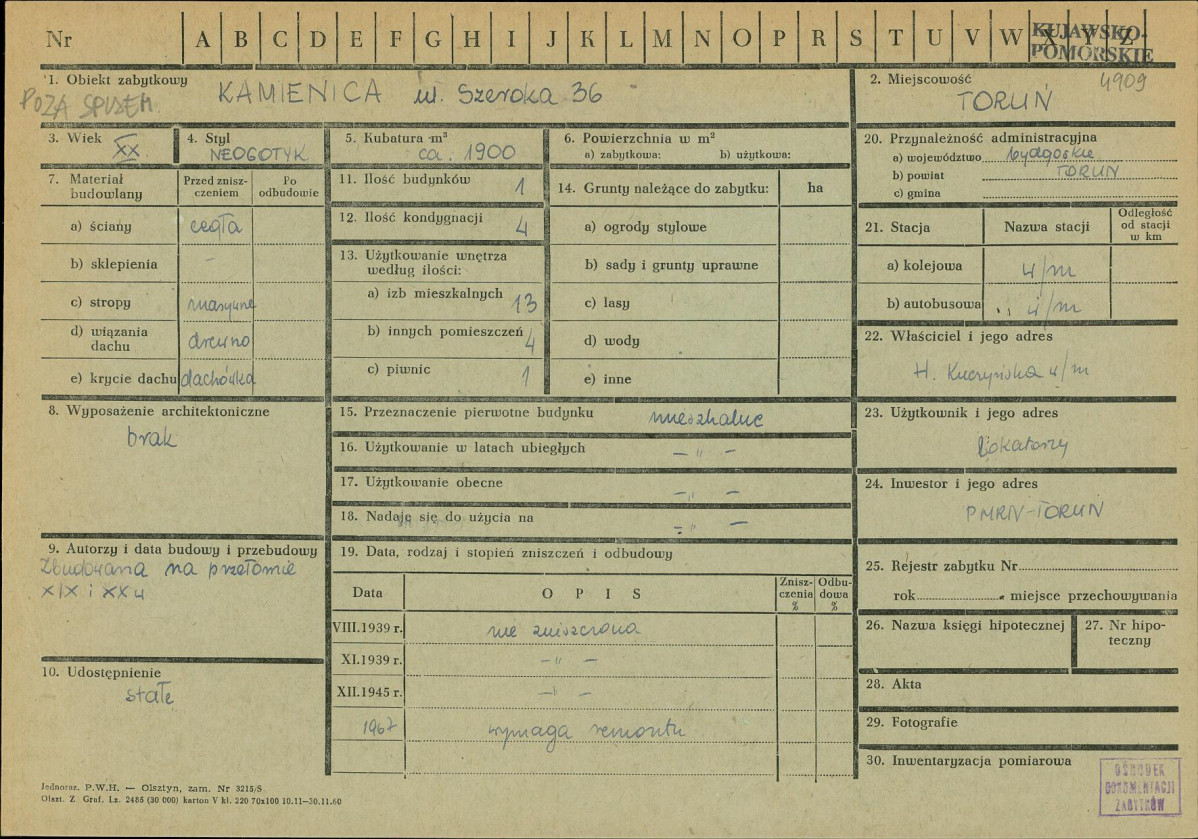 Nr A B C D E F G H I J K L M N O P R S T U V W X Y Z
KUJAWSKO-
POMORSKIE
1. Obiekt zabytkowy
KAMIENICA ul. Szeroka 36
POZA SPISEM
2. Miejscowość 4909
TORUŃ
3. Wiek
XX
4. Styl
NEOGOTYK
5. Kubatura m³
ca. 1900
6. Powierzchnia w m²
a) zabytkowa: b) użytkowa:
20. Przynależność administracyjna
a) województwo bydgoskie
b) powiat TORUŃ
c) gmina
7. Materiał budowlany
Przed zniszczeniem
Po odbudowie
a) ściany cegła
b) sklepienia -
c) stropy masywne
d) wiązania dachu drewno
e) krycie dachu dachówka
11. Ilość budynków 1
12. Ilość kondygnacji 4
13. Użytkowanie wnętrza
według ilości:
a) izb mieszkalnych 13
b) innych pomieszczeń 4
c) piwnic 1
14. Grunty należące do zabytku: ha
a) ogrody stylowe
b) sady i grunty uprawne
c) lasy
d) wody
e) inne
21. Stacja
Nazwa stacji
Odległość
od stacji
w km
a) kolejowa w/m
b) autobusowa w/m
22. Właściciel i jego adres
H. Kuczyńska w/m
8. Wyposażenie architektoniczne
brak
15. Przeznaczenie pierwotne budynku mieszkalne
16. Użytkowanie w latach ubiegłych - " -
17. Użytkowanie obecne - " -
18. Nadaje się do użycia na - " -
23. Użytkownik i jego adres
lokatorzy
24. Inwestor i jego adres
PMRN-TORUŃ
9. Autorzy i data budowy i przebudowy
Zbudowana na przełomie
XIX i XX w
10. Udostępnienie
stałe
19. Data, rodzaj i stopień zniszczeń i odbudowy
Data
O P I S
Zniszczenia %
Odbudowa %
VIII.1939 r. nie zniszczona
XI.1939 r. - " -
XII.1945 r. - " -
1967 wymaga remontu
25. Rejestr zabytku Nr
rok miejsce przechowywania
26. Nazwa księgi hipotecznej
27. Nr hipoteczny
28. Akta
29. Fotografie
30. Inwentaryzacja pomiarowa
OŚRODEK
DOKUMENTACJI
ZABYTKÓW
Jednoraz. P.W.H. — Olsztyn, zam. Nr 3215/S
Olszt. Z. Graf. Lz. 2485 (30 000) karton V kl. 220 70x100 10.11—30.11.60